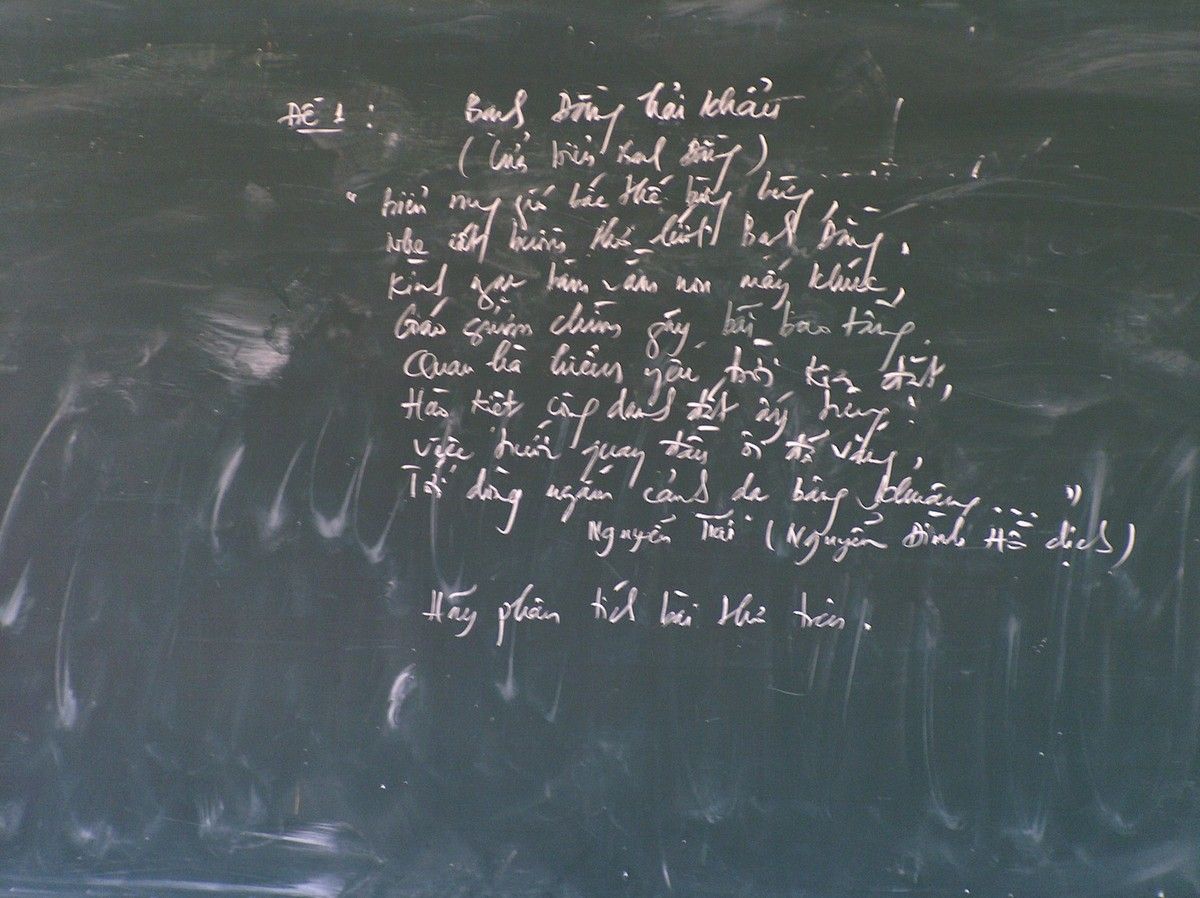 ĐỀ 1 : Bạch Đằng hải khẩu
(Cửa biển Bạch Đằng)
"Biển rung gió bấc thế bừng bừng,
Nhẹ cất buồm thơ lướt Bạch Đằng.
Kình ngạc băm vằm non mấy khúc,
Giáo gươm chìm gãy bãi bao tầng.
Quan hà hiểm yếu trời kia đặt,
Hào kiệt công danh đất ấy từng.
Việc trước quay đầu ôi đã vắng,
Tới dòng ngắm cảnh dạ bâng khuâng..."
Nguyễn Trãi (Nguyễn Đình Hồ dịch)
Hãy phân tích bài thơ trên.